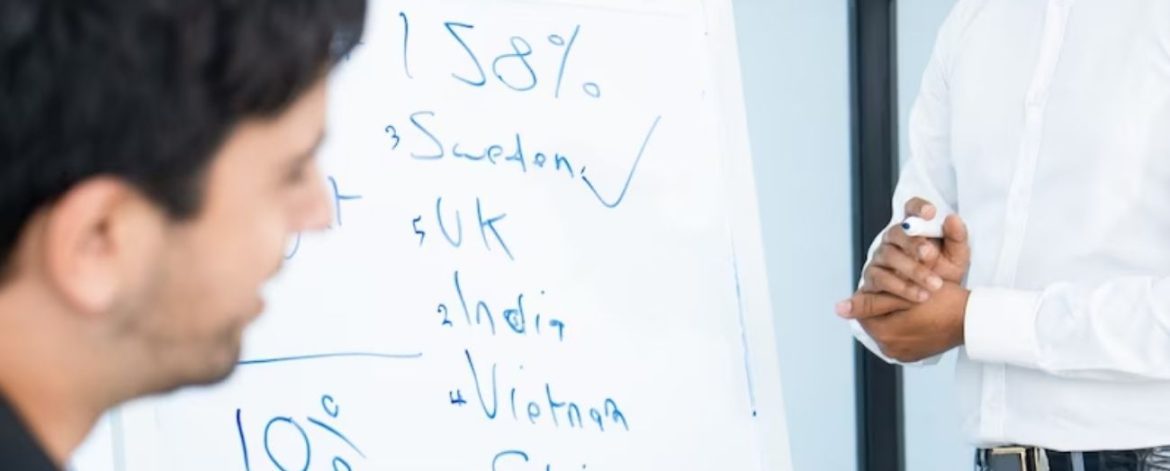 158%
3 Sweden ✓
5 UK
2 India
4 Vietnam
10%